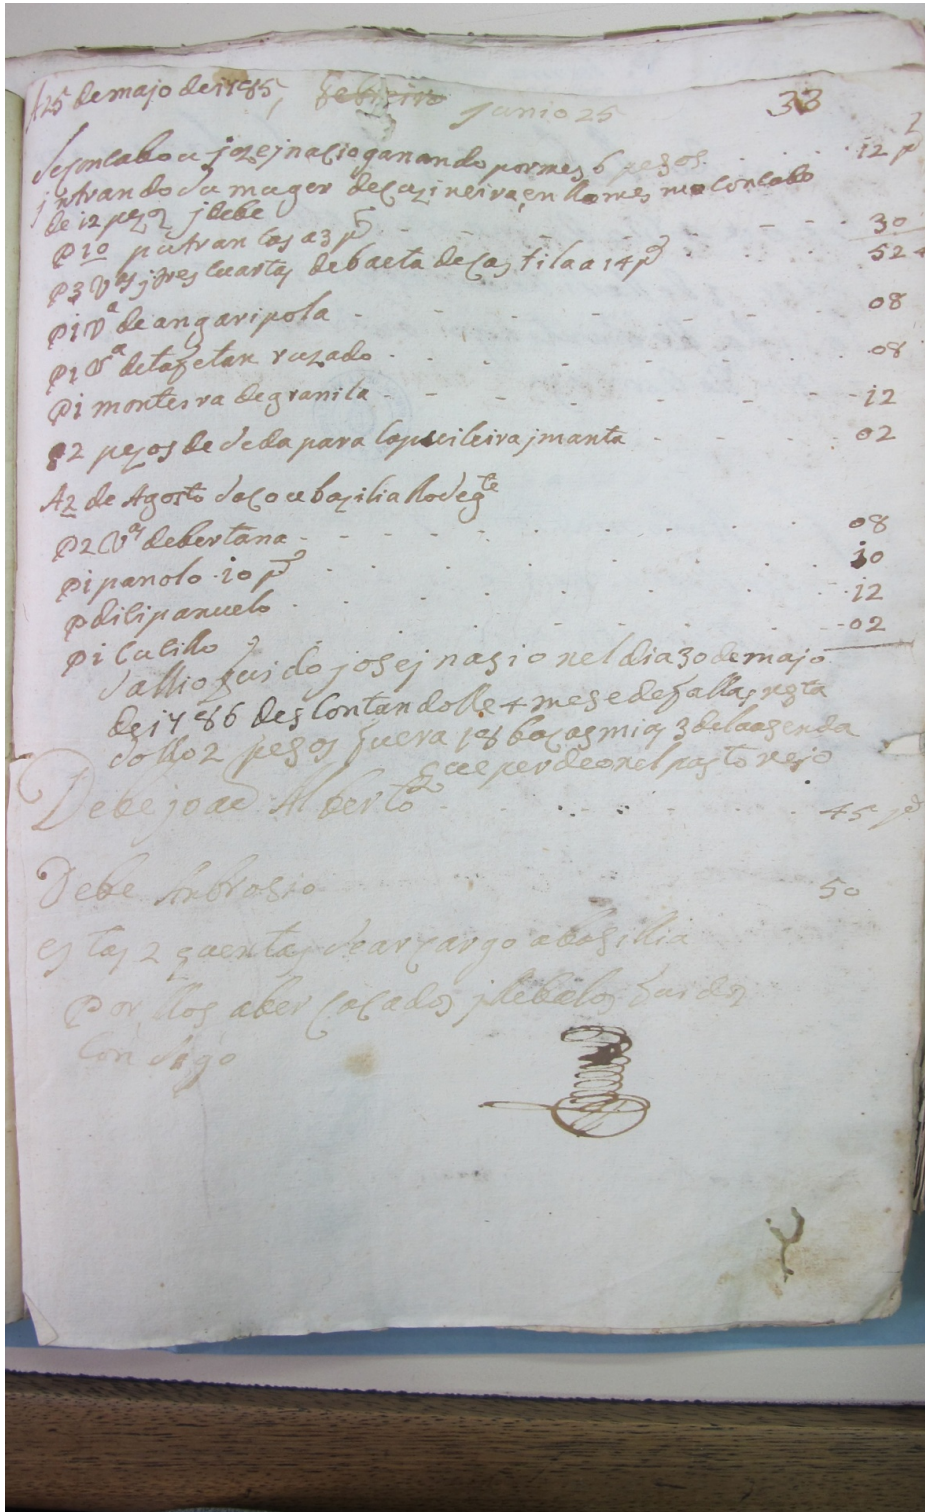 A 25 de majo de 1785, Febreiro Junio 25 33
Se Conlabo a jozejnacio ganando por mes 6 pesos 12 p
jntrando Su muger de Cozineira, en llo mes mo Conlabo
de 12 pezos j debe
P 10 patran Cas a 3 ps 30
P 3 Vs j tres Cuartas de baeta de Castila a 14 ps 52 4
P 1 Va de angaripola 08
P 1 Va de tafetan ruzado 08
P 1 monteira de granila 12
P 2 pezos de Seda para la j manta 02
A 2 de Agosto Saco a bazilia llo Segte
P 2 Vs debertana 08
P 1 panolo 10 ps 10
P di li panuelo 12
P 1 Cutillo 02
Sallio fuido josejnasio nel dia 30 de majo
de 1786 descontandolle 4 mese de fallas resta
Sollo 2 pesos fuera 18 bacas mias 3 dela asenda
que perdeo nel pasto rejo
Debe joao Alberto 45 ps
Debe Anbrosio 50
estas 2 quentas Sear cargo a basillia
Por llos aber Sacados j llebalos fuidos
Con Sigo